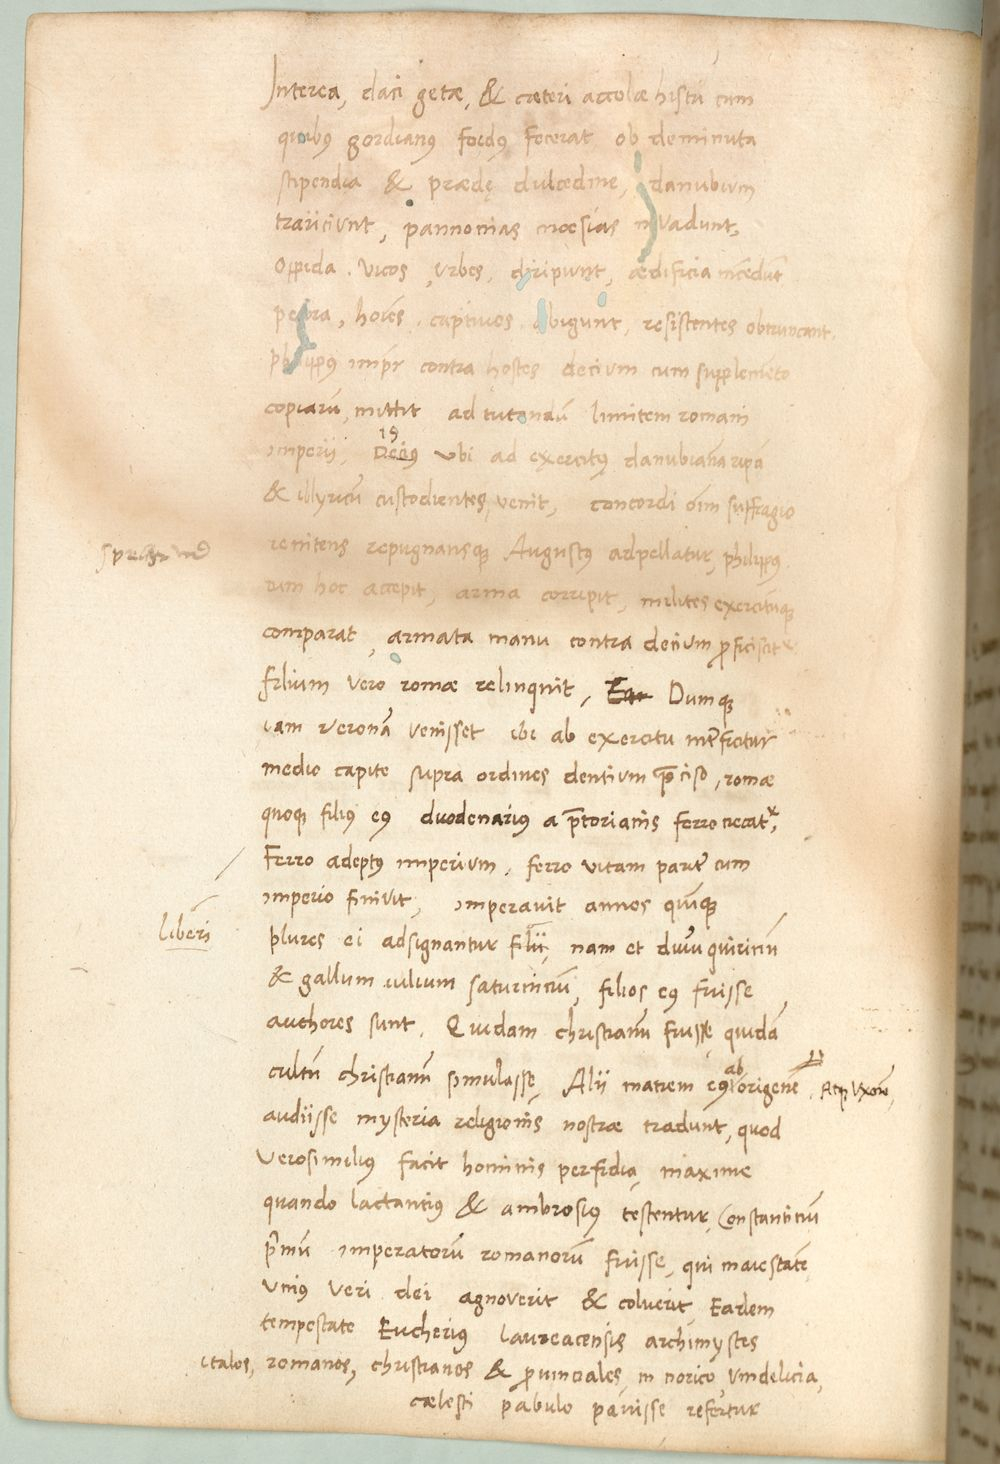 Interea, daci getæ, & cæteri accolæ histri cum
quibus gordianus foedus fecerat ob deminuta
stipendia & prædę dulcedine, danubium
traiiciunt, pannonias moesias invadunt,
Oppida, vicos, urbes, diripiunt, ædificia incendūt
pecora, hoīes, captivos abigunt, resistentes obtruncant.
philippus impr contra hostes decium cum supplemēto
copiarū, mittit ad tutandū limitem romani
imperij, is ubi ad exercitus danubianā ripā
& illyricū custodientes, venit, concordi oīm suffragio
renitens repugnansque Augustus adpellatur, philippus
cum hoc accepit, arma corripit, milites exercitūque
comparat, armata manu contra decium proficiscitr
filium vero romæ relinquit, Dumque
iam veronā venisset ibi ab exercitu interficitur
medio capite supra ordines dentium præciso, romæ
quoque filius eius duodenarius a prætorianis ferro necatr,
Ferro adeptus imperium, ferro vitam pariter cum
imperio finivit, imperavit annos quīque
liberi
plures ei adsignantur filii, nam et quirinū
& gallum iulium saturninū, filios eius fuisse
authores sunt. Quidam christianū fuisse, quidā
cultū christianū simulasse, Alij matrem eius ab origene, Atque Uxorē,
audiisse mysteria religionis nostræ tradunt, quod
verosimilius facit hominis perfidia, maxime
quando lactantius & ambrosius testentur, Constantinū
primū imperatorū romanorū fuisse, qui maiestatē
unius veri dei agnoverit & coluerit, Eadem
tempestate Eucherius laureacensis archimystes
italos, romanos, christianos & provinciales, in norico vindelicia,
cælesti pabulo pavisse refertur